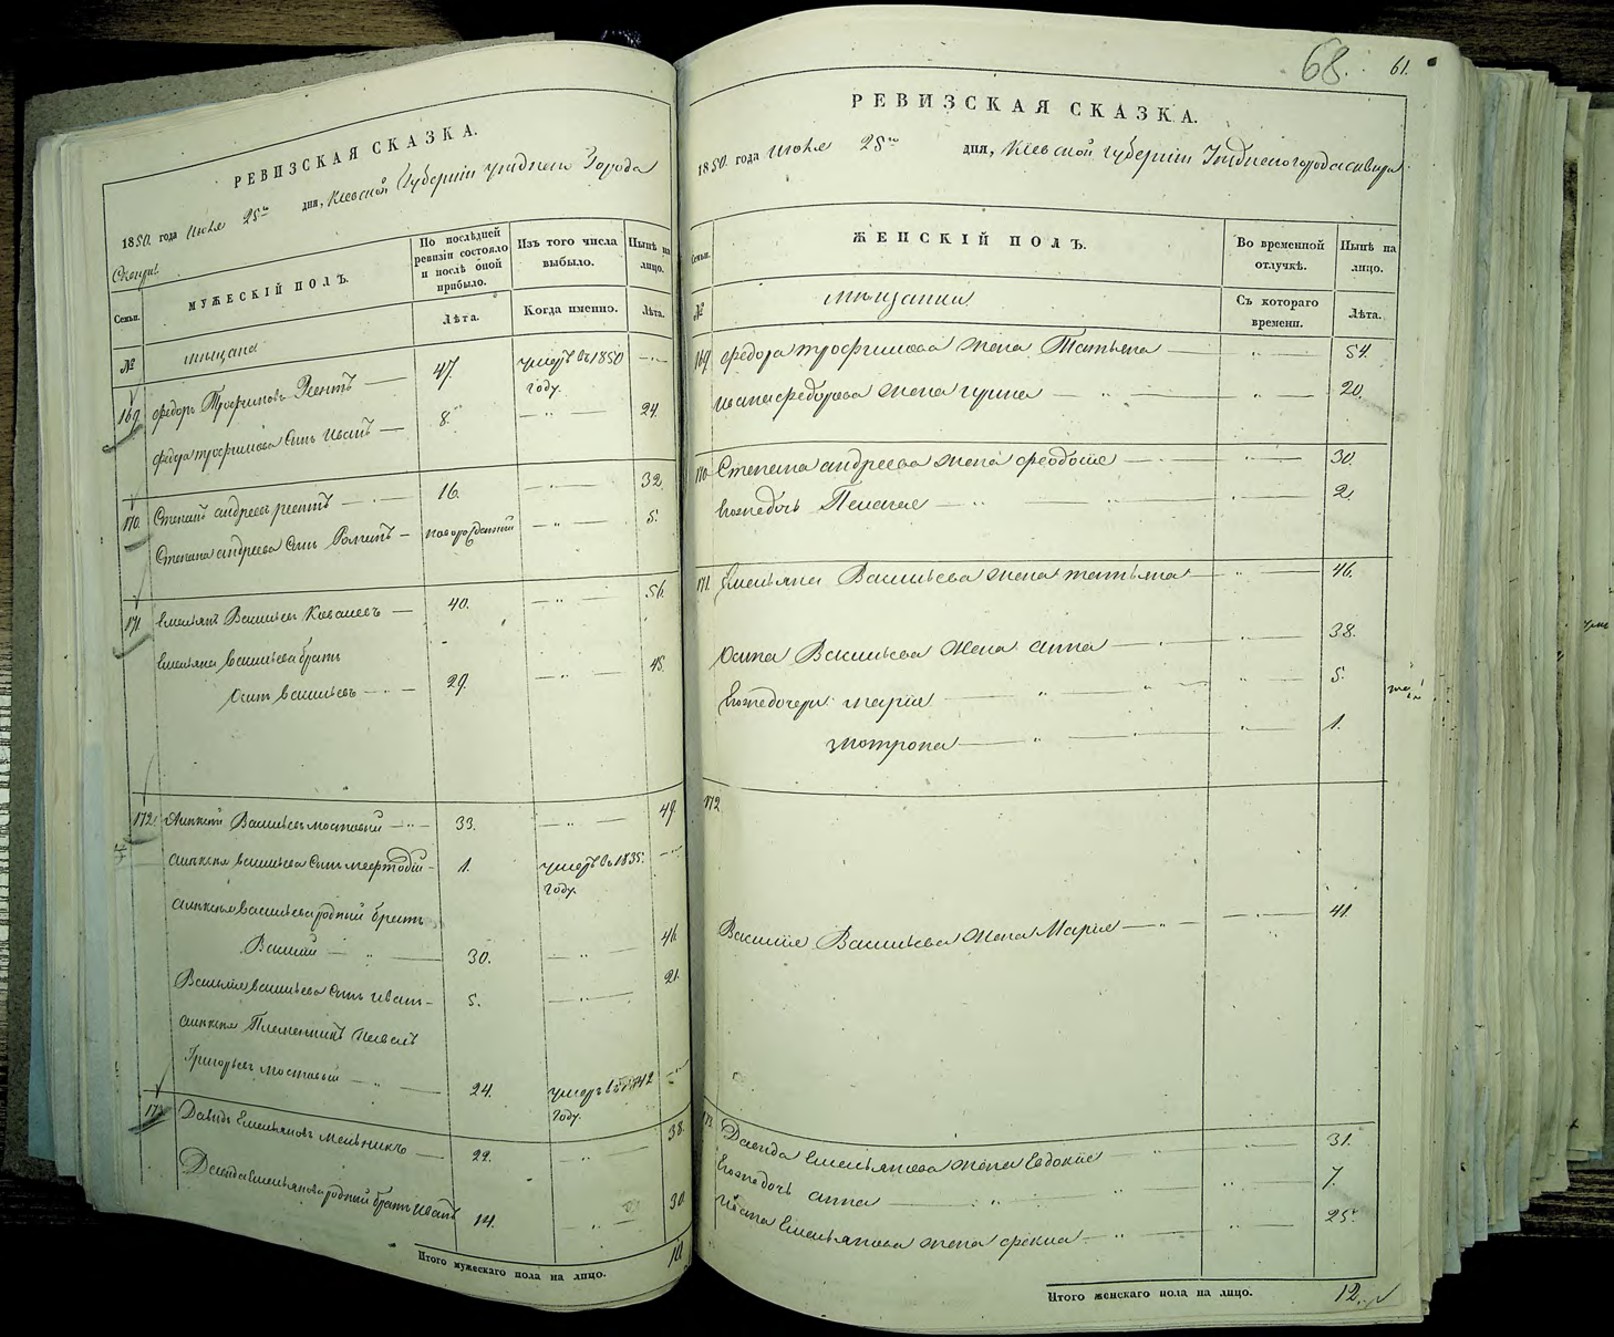 РЕВИЗСКАЯ СКАЗКА.
1850. года Июля 25го дня, Кіевской Губерніи уѣзднаго Города
Сквиры
Семьи.
МУЖЕСКІЙ ПОЛЪ.
По послѣдней ревизіи состояло и послѣ оной прибыло.
Изъ того числа выбыло.
Нынѣ на лицо.
№
мѣщане
Лѣта.
Когда именно.
Лѣта.
169 Федоръ Трофимовъ — 47. умеръ въ 1850 году.
Федора трофимова Сынъ Иванъ — 8. 24.
170 Степанъ андреевъ — 16. 32.
Степана андреева Сынъ Романъ — новорожденный 5.
171 Емельянъ Васильевъ Ковалевъ — 40. 56.
Емельяна васильева братъ
Осипъ васильевъ — 29. 45.
172. Алексѣй Васильевъ мостовый — 33. 49.
алексѣя васильева Сынъ мефтодій — 1. умеръ въ 1835. году.
алексѣя васильева родный братъ
Василій — 30. 46.
Василія васильева Сынъ иванъ — 5. 21.
алексѣя Племенникъ Павелъ
Григорьевъ мостовый — 24. умеръ въ 1842 году.
173 Давидъ Емельяновъ мельникъ — 22. 38.
Давида Емельянова родный братъ иванъ 14. 30.
Итого мужескаго пола на лицо. 10.
68. 61.
РЕВИЗСКАЯ СКАЗКА.
1850. года Июля 25го дня, Кіевской губерніи Уѣзднаго города сквира
Семьи.
ЖЕНСКІЙ ПОЛЪ.
Во временной отлучкѣ.
Нынѣ на лицо.
№
мѣщанки
Съ котораго времени.
Лѣта.
169 Федора трофимова жена Татьяна — 54.
ивана федорова жена — 20.
170 Степана андреева жена феодосіе — 30.
Егожедочь Пелагее — 2.
171. Емельяна Васильева жена татьяна — 46.
Осипа Васильева жена анна — 38.
Егожедочери марія — 5.
мотрона — 1.
172
Василія Васильева жена Марія — 41.
173 Давида Емельянова жена Евдокіе — 31.
Егожедочь анна — 7.
Ивана Емельянова жена фекла — 25.
Итого женскаго пола на лицо. 12.